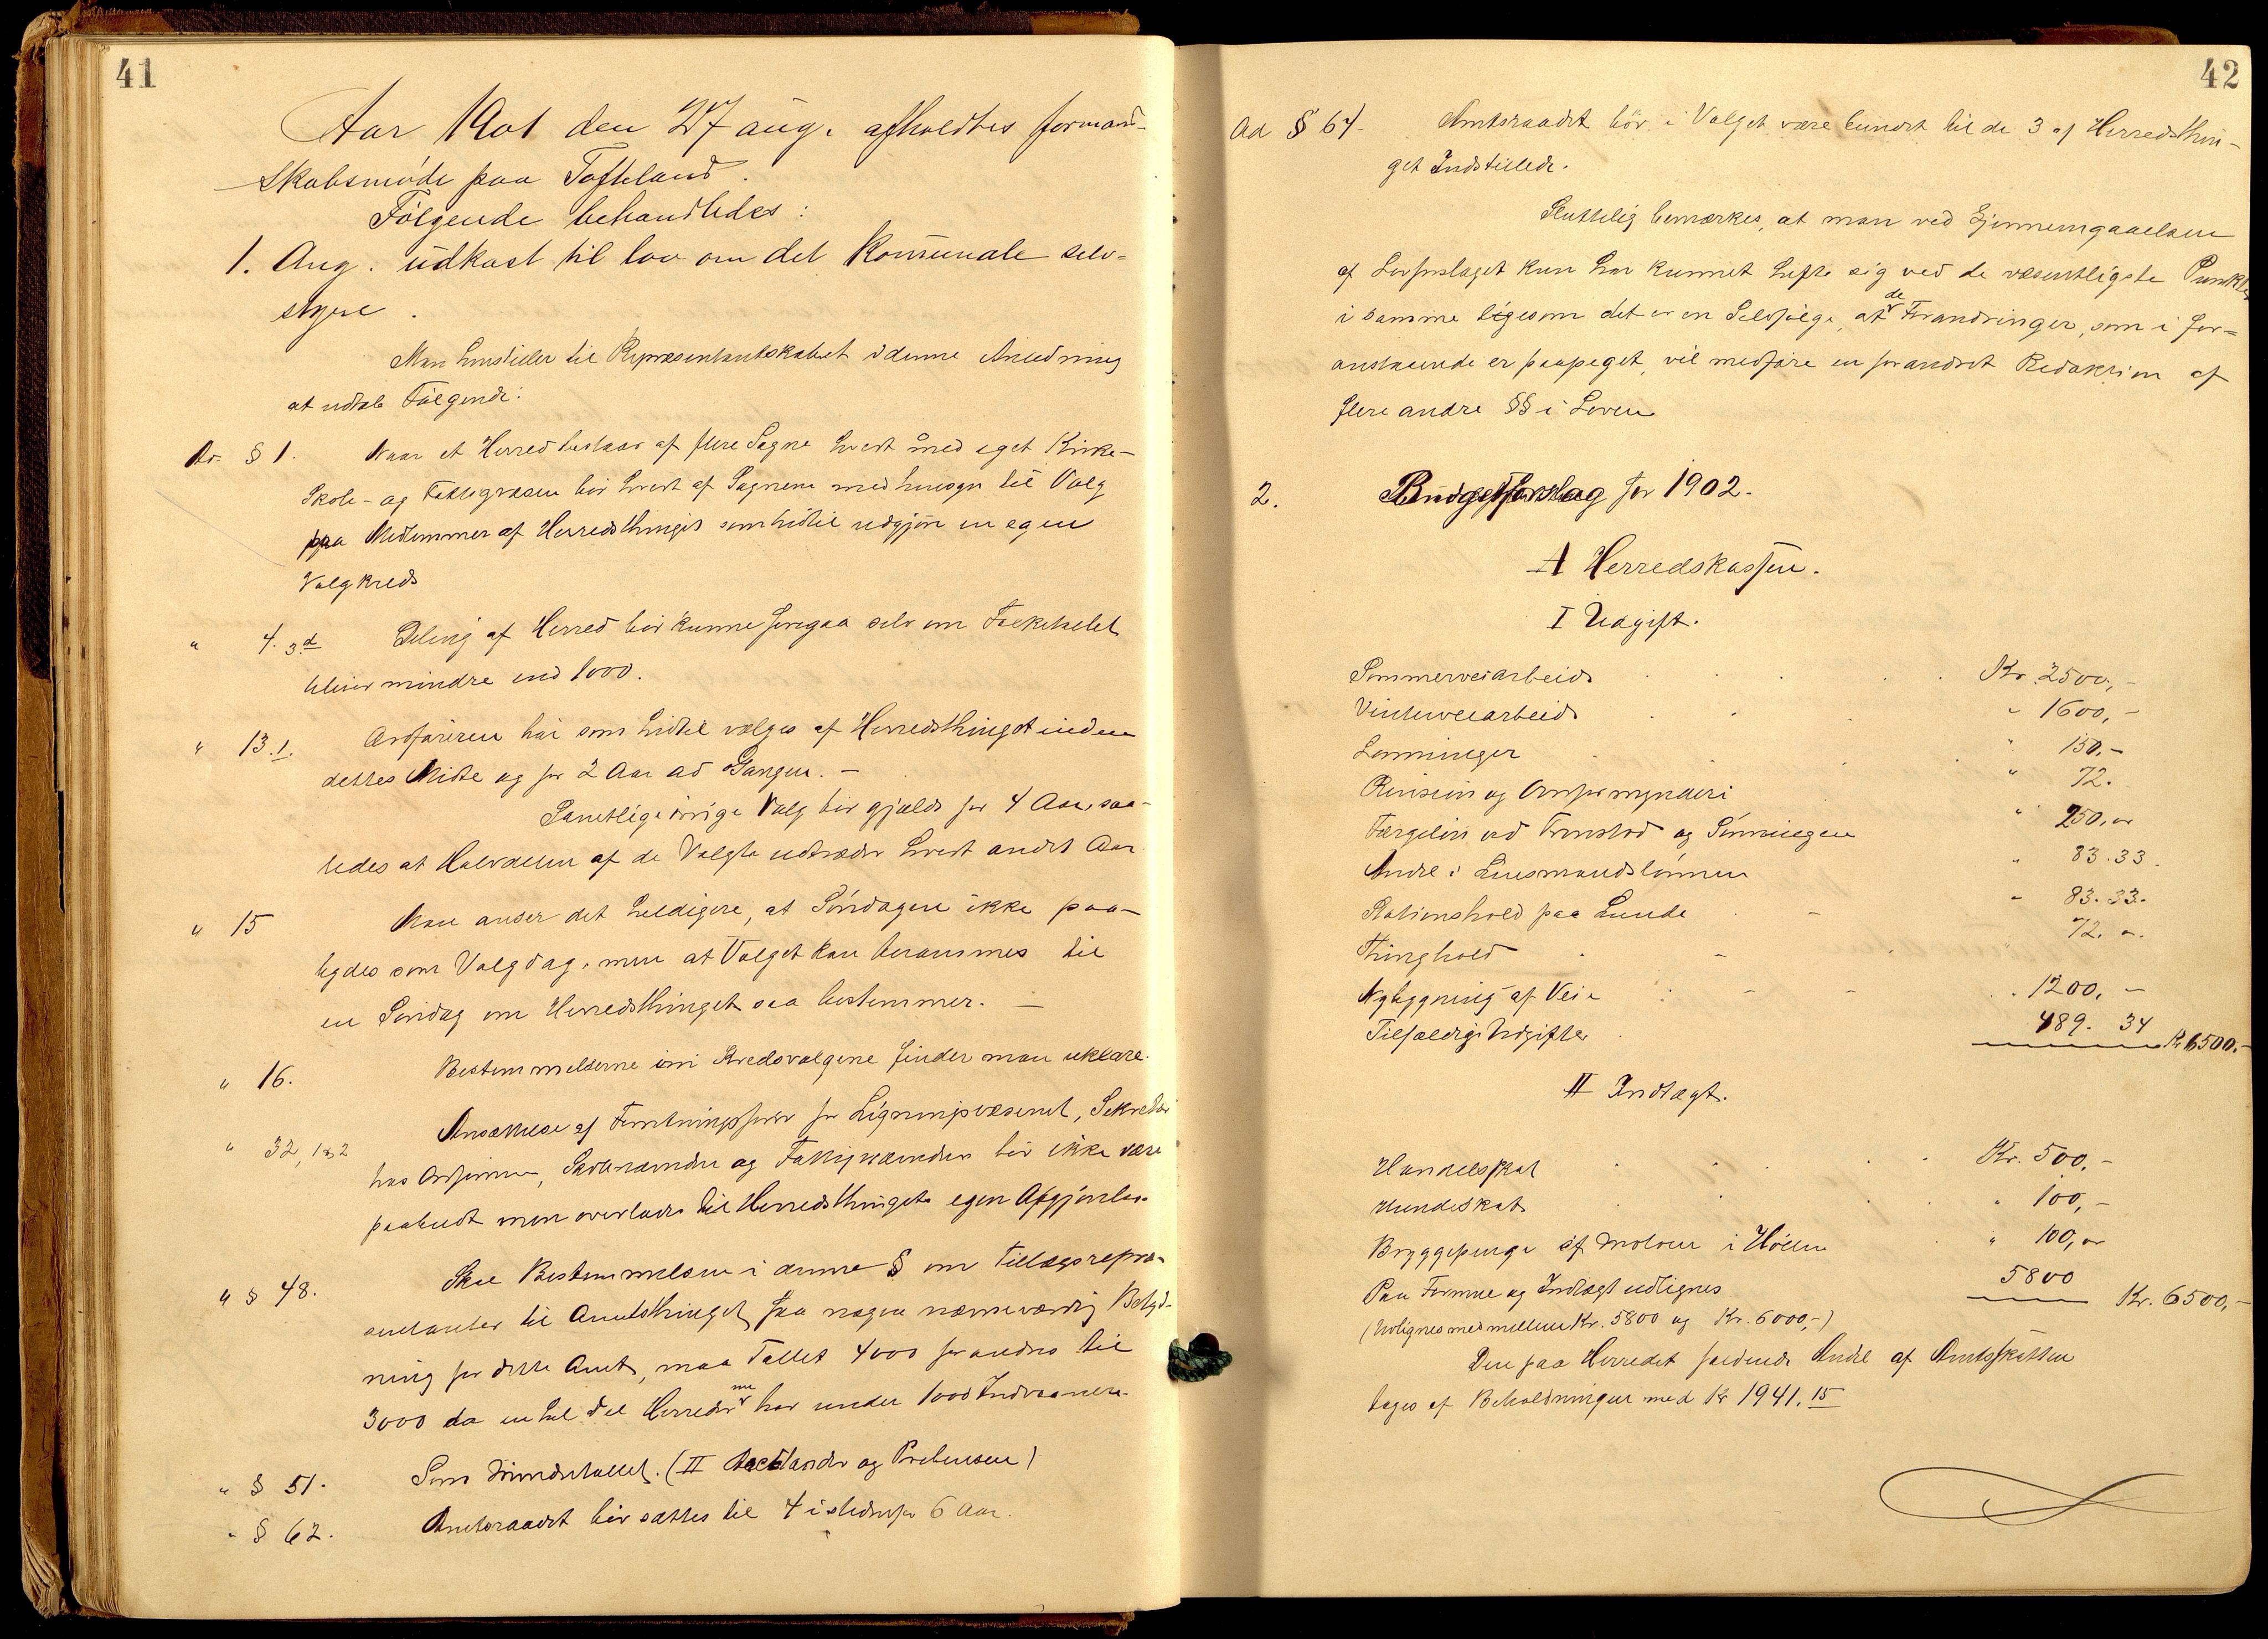 41
Aar 1901 den 27 aug. afholdtes formand-
skabsmöde paa Tofteland.
Følgende behandledes:
1. Ang. udkast til lov om det kommunale selv=
styre.
Man henstiller til Repræsentantskabet i denne Anledning
at udtale Følgende:
Ad § 1. Naar et Herred bestaar af flere Sogne hvert med eget Kirke-
Skole- og Fattigvæsen bör hvert af Sognene med hensyn til Valg
paa Medlemmer af Herredsthinget som hidtil udgjöre en egen
Valgkreds
" 4. 3d Deling af Herred bör kunne foregaa selv om Folketallet
bliver mindre end 1000.
" 13.1. Ordföreren bör som hidtil vælges af Herredsthinget inden
dettes Midte og for 2 Aar ad Gangen. —
Samtlige övrige Valg bör gjælde for 4 Aar, saa-
ledes at Halvdelen af de Valgte udtræder hvert andet Aar
" 15 Man anser det heldigere, at Söndagen ikke paa-
bydes som Valgdag, men at Valget kan berammes til
en Söndag om Herredsthinget saa bestemmer. —
" 16. Bestemmelserne om Kredsvalgene finder man uklare.
" 32, 1 og 2 Ansættelse af Forretningsförer for Ligningsvæsenet, Sekretær
hos Ordföreren, Skolenævnden og Fattignævnden bör ikke være
paabudt men overlades til Herredsthingets egen Afgjörelse.
" § 48. Skal Bestemmelsen i denne § om Tillægsrepræ-
sentanter til Amtsthinget faa nogen nævneværdig Betyd-
ning for dette Amt, maa Tallet 4000 forandres til
3000 da en hel Del Herreder ne har under 1000 Indvaanere.
" § 51. Som Mindretallet. (II Aactander og Prebensen)
" § 62. Amtsraadet bör sættes til 4 istedenfor 6 Aar.
42
Ad § 64. Amtsraadet bör i Valget være bundet til de 3 af Herredsthin-
get Indstillede.
Sluttelig bemærkes, at man ved Gjennemgaaelsen
af Lovforslaget kun har kunnet hefte sig ved de væsentligste Punkter
i samme ligesom det er en Selvfölge, at de Forandringer, som i for=
anstaaende er paapeget, vil medföre en forandret Redaktion af
flere andre §§ i Loven
2. Budgetforslag for 1902.
A Herredskassen.
I Udgift.
Sommerveiarbeide Kr. 2500,-
Vinterveiarbeide " 1600,-
Lönninger " 150,-
Revision og Overformynderi " 72.
Færgelön ved Tronstad og Sinningen " 250, "
Andel i Lensmandslönnen " 83.33.
Stationshold paa Lunde " 83.33.
Thinghold " 72. "
Nybygning af Veie " 1200, -
Tilfældige Udgifter 489. 34 Kr 6500.-
II Indtægt.
Handelsskat Kr. 500,-
Hundeskat " 100,-
Bryggepenge af Moloen i Höllen " 100, "
Paa Formue og Indtægt udlignes 5800 Kr. 6500,-
(Udlignes med mellem Kr. 5800 og Kr. 6000,-)
Den paa Herredet faldende Andel af Amtsskatten
tages af Beholdningen med Kr 1941.15